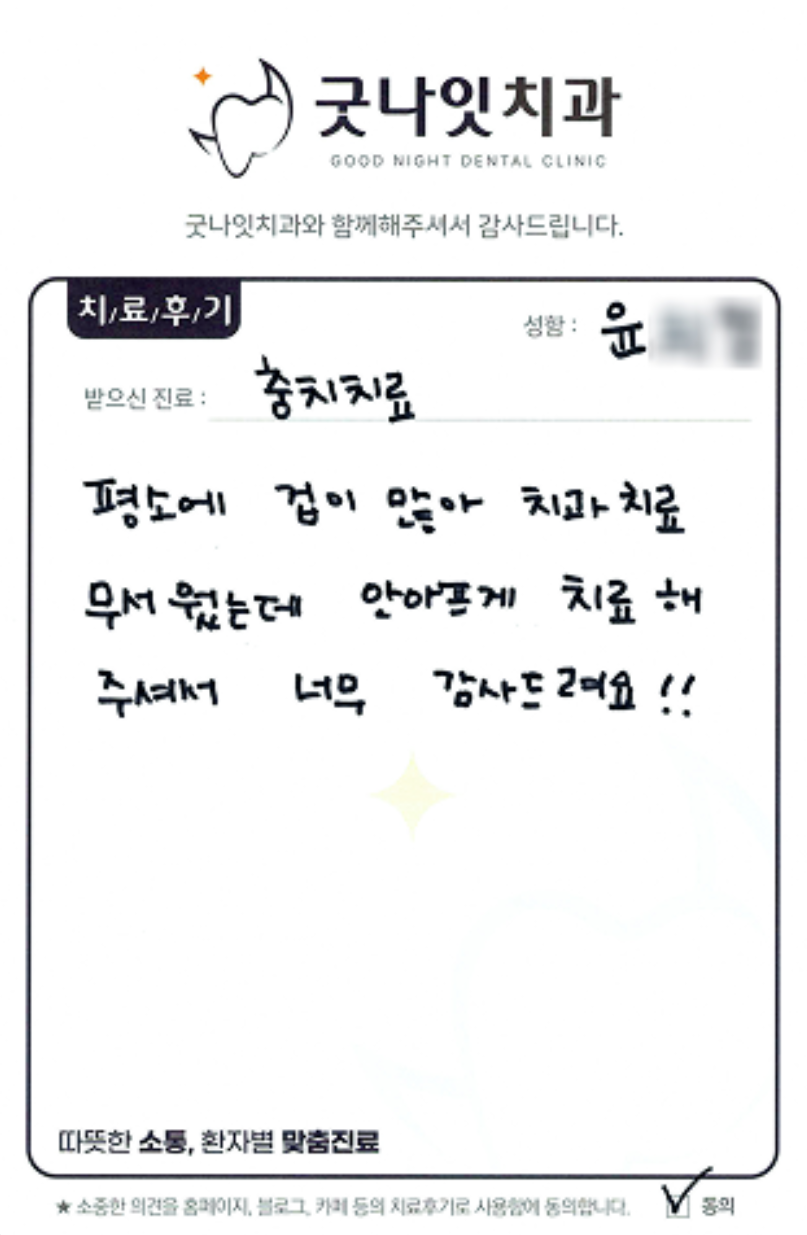 굿나잇치과
GOOD NIGHT DENTAL CLINIC
굿나잇치과와 함께해주셔서 감사드립니다.
치/료/후/기
성함 : 윤
받으신 진료 : 충치치료
평소에 겁이 많아 치과치료
무서웠는데 안아프게 치료해
주셔서 너무 감사드려요!!
따뜻한 소통, 환자별 맞춤진료
★ 소중한 의견을 홈페이지, 블로그, 카페 등의 치료후기로 사용함에 동의합니다. 동의